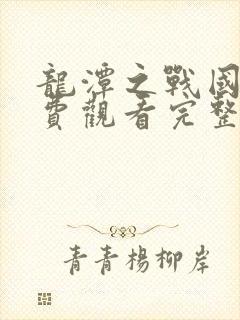 龍潭之戰國
費觀看完整
青青楊柳岸